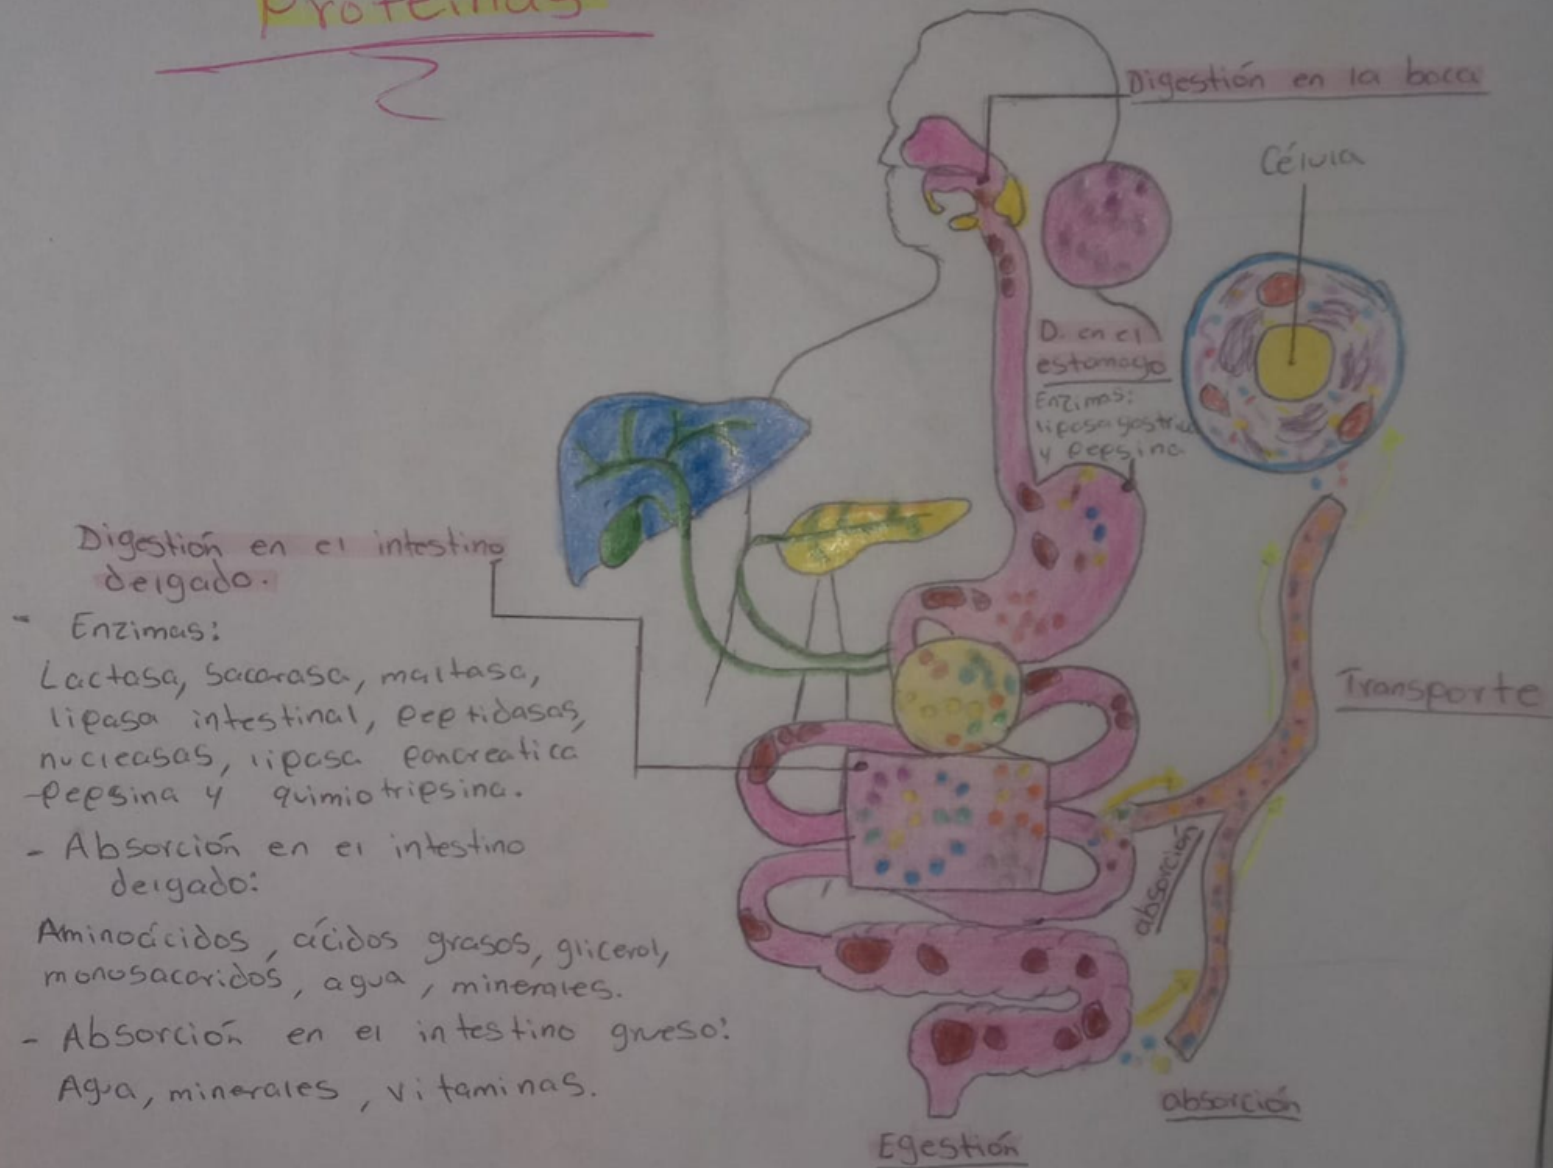 Proteínas
Digestión en la boca
Célula
D. en el
estomago
Enzimas:
liposa gastrica
y pepsina
Digestión en el intestino
delgado.
- Enzimas:
Lactosa, sacarasa, maltasa,
lipasa intestinal, peptidasas,
nucleasas, liposa pancreatica
-pepsina y quimiotripsina.
- Absorción en el intestino
delgado:
Aminoácidos, ácidos grasos, glicerol,
monosacaridos, agua, minerales.
- Absorción en el intestino grueso:
Agua, minerales, vitaminas.
Transporte
absorción
absorción
Egestión